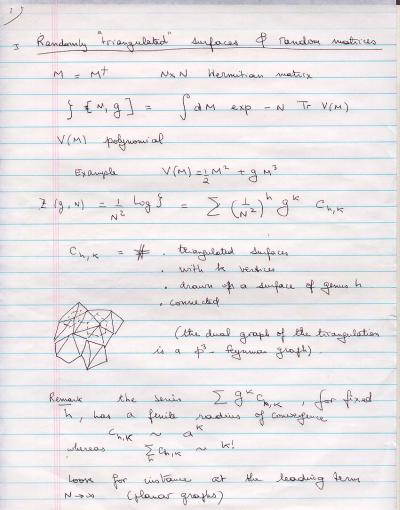 1)
I Randomly "triangulated" surfaces & random matrices
M = M† N×N Hermitian matrix
ζ [N, g] = ∫ dM exp - N Tr V(M)
V(M) polynomial
Example V(M) = 1/2 M² + g M³
Z (g, N) = 1/N² Log ζ = Σ (1/N²)^h g^k C_{h,k}
C_{h,k} = # . triangulated surfaces
. with k vertices
. drawn on a surface of genus h
. connected
(the dual graph of the triangulation
is a φ³ - Feynman graph).
Remark the series Σ g^k C_{h,k}, for fixed
h, has a finite radius of convergence
C_{h,k} ~ a^k
whereas Σ_h C_{h,k} ~ k!
Look for instance at the leading term
N→∞ (planar graphs)